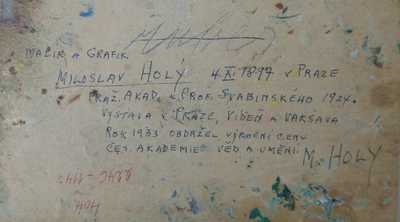 MALÍŘ A GRAFIK
MILOSLAV HOLÝ 4 XI 1897 V PRAZE
PRAŽ. AKAD. U PROF. ŠVABINSKÉHO 1924.
VÝSTAVA V PRAZE, VÍDEŇ A VARŠAVA
ROK 1933 OBDRŽEL VÝROČNÍ CENU
ČES. AKADEMIE VĚD A UMĚNÍ.
M. HOLÝ